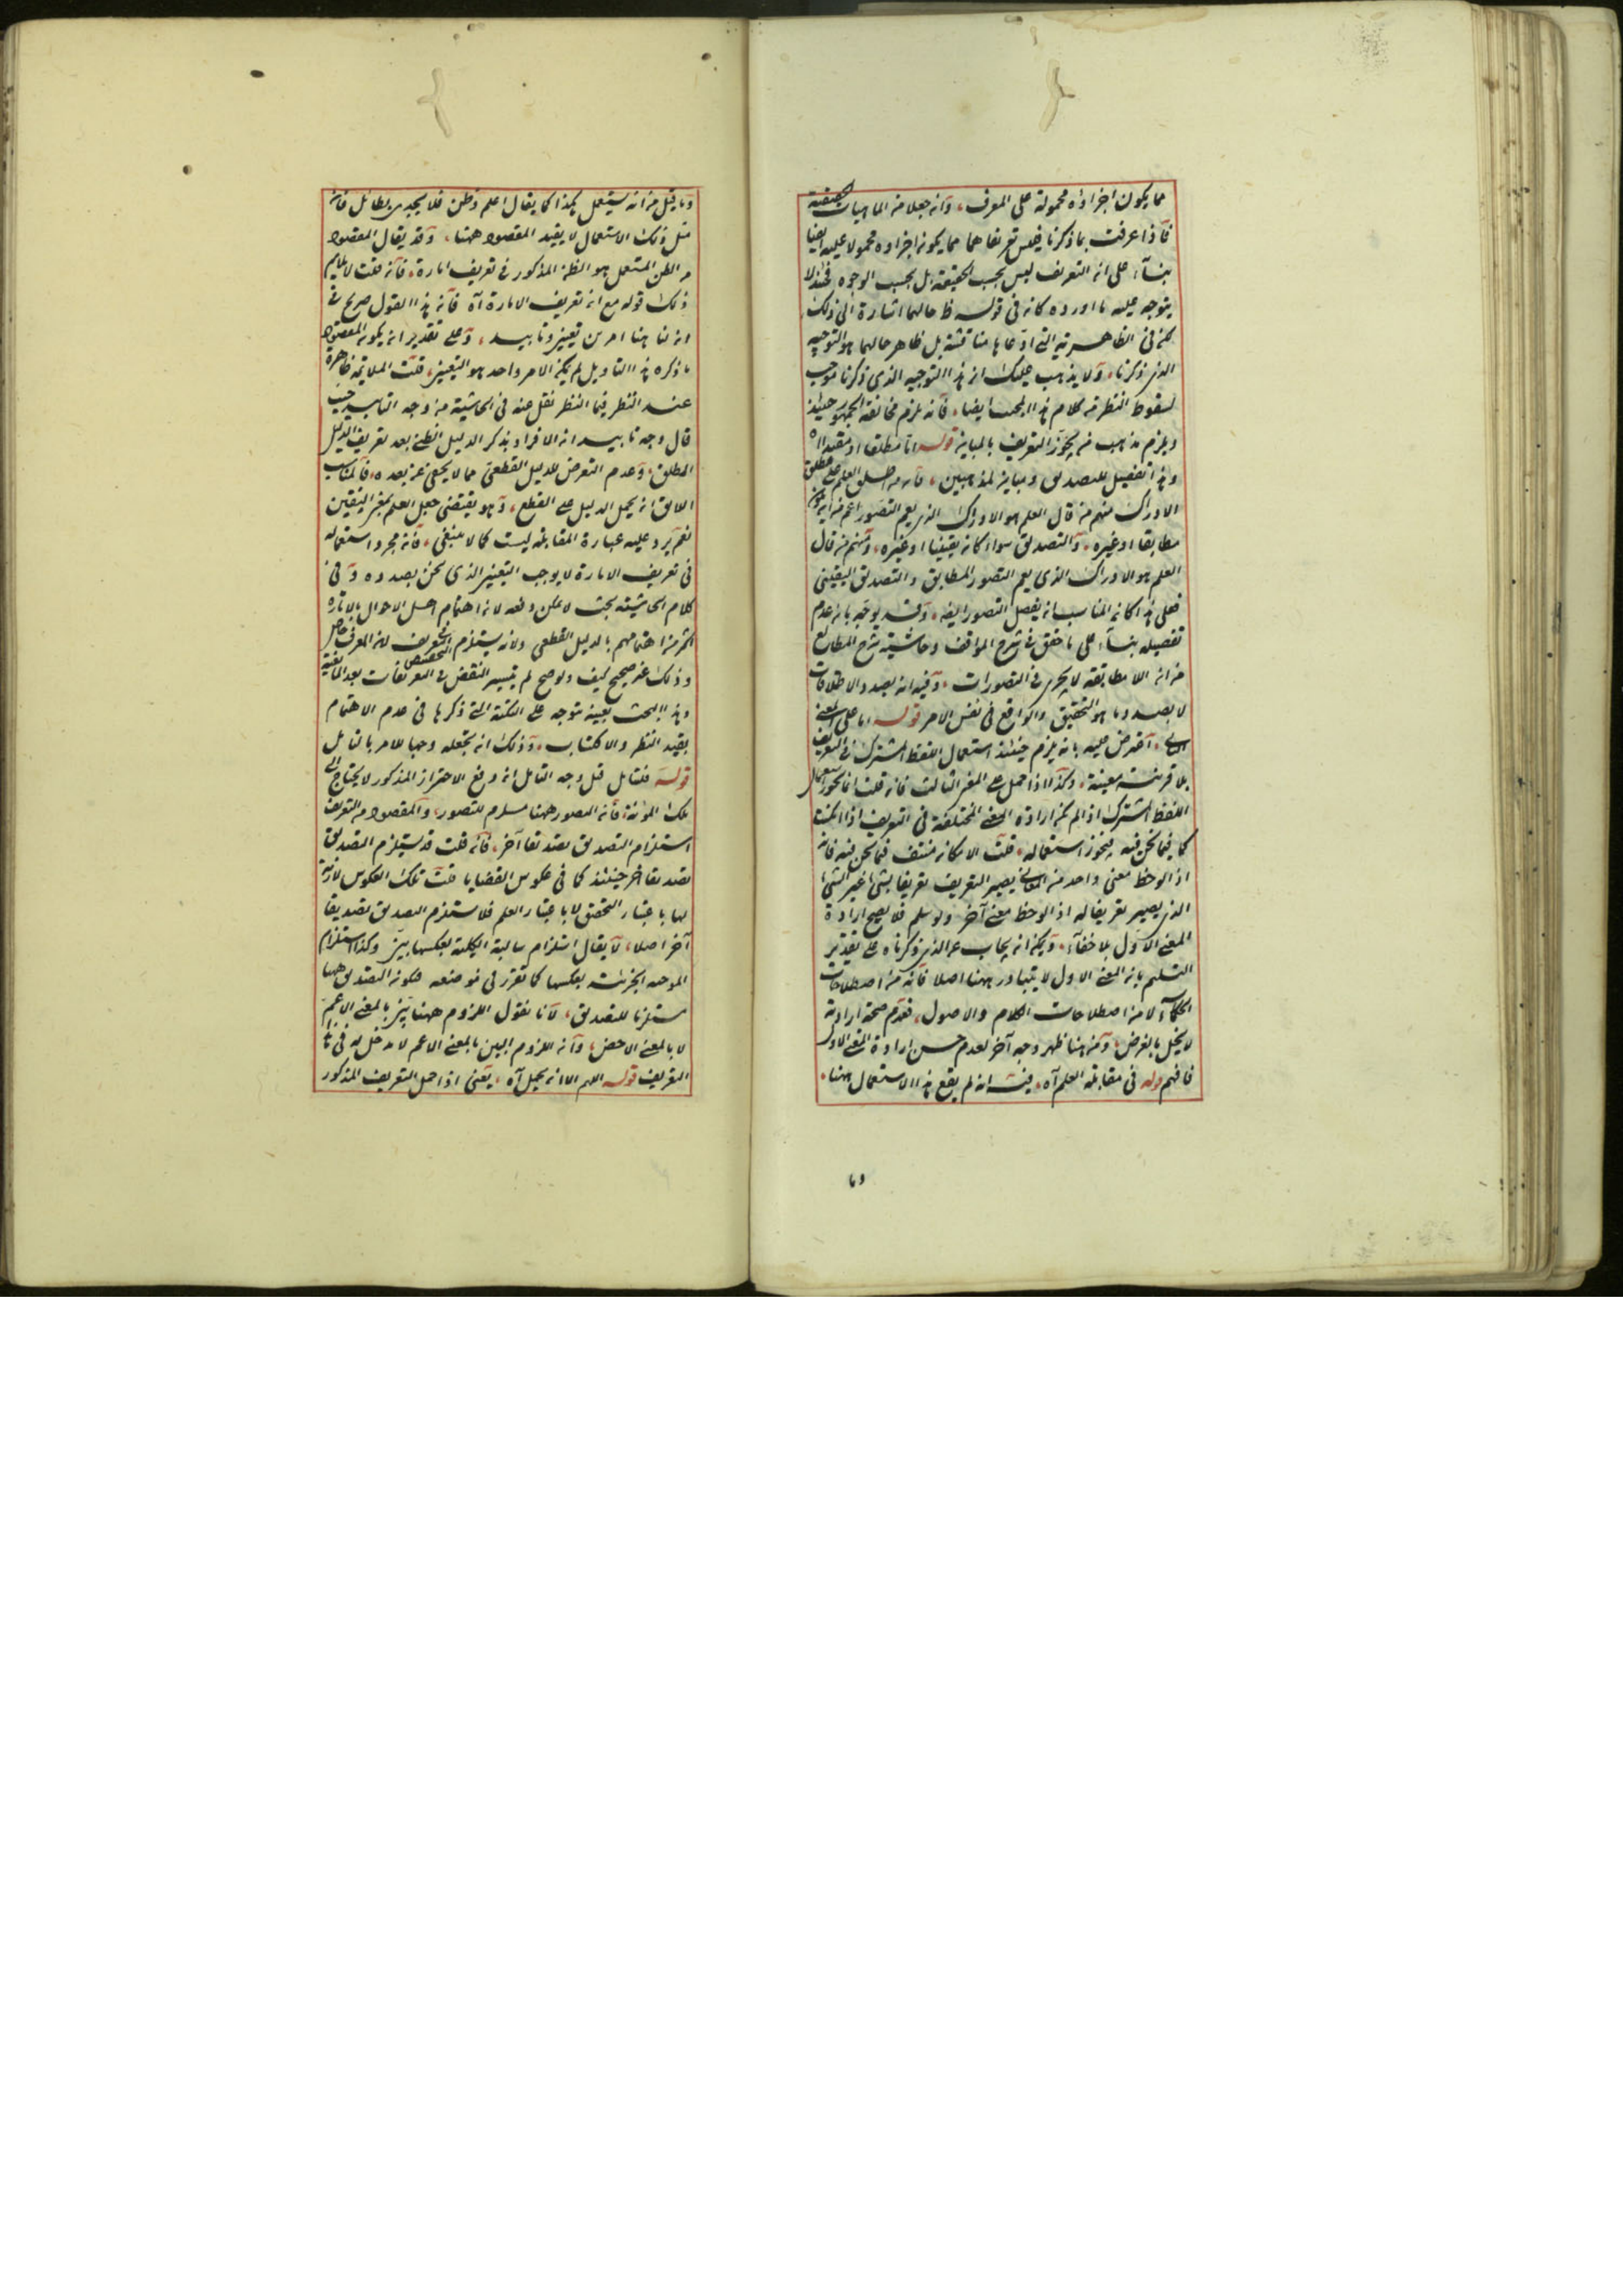 مما يكون اجزاؤه محمولة على المعرف، وانه جعلا من الماهيات الحقيقية
فاذا عرفت بما ذكرنا فليس تعريفاهما مما يكون اجزاوه محمولا عليه ايضا
بناء على ان التعريف ليس بحسب الحقيقة بل بحسب الوجوه فحينئذ لا
يتوجه عليه ما اورده كانه فى قوله ظ حالهما اشارة الى ذلك
لكن فى الظاهرية التى ادعاها مناقشة بل ظاهر حالهما هو التوجيه
الذى ذكرنا، ولا يذهب عليك ان هذا التوجيه الذى ذكرنا موجب
لسقوط النظر من كلام هذا المجيب ايضا، فانه يلزم مخالفة الجمهور حينئذ
ويلزم مذهب من يجوز التعريف بالمباين قوله اما مطلقا او مقيدا اه
وهذا تفصيل للتصديق ومباين لمذهبين، فانه من اطلق العلم على مطلق
الادراك منهم من قال العلم هو الادراك الذى يعم التصور اعم من ان يكون
مطابقا او غيره، والتصديق سواء كان يقينيا او غيره، ومنهم من قال
العلم هو الادراك الذى يعم التصور المطابق والتصديق اليقينى
فعلى هذا كان المناسب ان يفصل التصور ايضا، وقد يوجه بان عدم
تفصيله بناء على ما حقق فى شرح المواقف وحاشية شرح المطالع
من ان اللا مطابقة لا يجرى فى التصورات، وفيه انه بصدد الاطلاقات
لا بصدد ما هو التحقيق والواقع فى نفس الامر قوله اما على المعنى
الثانى، اعترض عليه بانه يلزم حينئذ استعمال اللفظ المشترك فى التعريف
بلا قرينة معينة، وكذا اذا حمل على المعنى الثالث فان قلت انما يجوز استعمال
اللفظ المشترك اذا لم يمكن ارادة المعنى المختلفة فى التعريف اذا امكنت
كما فيما نحن فيه فيجوز استعماله، قلت الامكان منتف فيما نحن فيه فانه
اذا لوحظ معنى واحد من المعانى يصير التعريف تعريفا بشئ غير الشئ
الذى يصير تعريفا له اذا لوحظ معنى آخر ولو سلم فلا يصح ارادة
المعنى الاول بلا خفاء، ويمكن ان يجاب عن الذى ذكرناه على تقدير
التسليم بان المعنى الاول لا يتبادر ههنا اصلا فانه من اصطلاحات
الحكماء لا من اصطلاحات الكلام والاصول، فعدم صحة ارادته
لا يخل بالغرض، ومن هنا ظهر وجه آخر لعدم حسن ارادة المعنى الاول
فافهم قوله فى مقابلة العلم آه، فيه انه لم يقع هذا الاستعمال ههنا،
وما
وما قيل من انه يستعمل هكذا كما يقال اعلم وظن فلا يجدى بطائل فان
مثل ذلك الاستعمال لا يفيد المقصود ههنا، وقد يقال المقصود
من الظن المستعمل هو الظن المذكور فى تعريف امارة، فان قلت لا يلايم
ذلك قوله مع ان تعريف الامارة آه فان هذا القول صريح فى
ان لنا هنا امرين تعيين وتاييد، وعلى تقدير ان يكون المقصود
ما ذكره هذا التاويل لم يكن الامر واحد هو التعيين، قلت الملايمة ظاهرة
عند النظر فيما النظر نقل عنه فى الحاشية من وجه التاييد حيث
قال وجه تاييد ان الافراد بذكر الدليل الظنى بعد تعريف الدليل
المطلق، وعدم التعرض للدليل القطعى مما لا يخفى عن بعده، فالمناسب
الالى ان يحمل الدليل على القطع، وهو يقتضى جعل العلم بمعنى اليقين
نعم يرد عليه عبارة المقابلة ليست كما لا ينبغى، فان مجرد استعماله
فى تعريف الامارة لا يوجب التعيين الذى نحن بصدده و فى
كلام الحاشية بحث لا يمكن دفعه لان اهتمام اهل الاحوال بالامارة
اكثر من اهتمامهم بالدليل القطعى ولانه يستلزم التعريف لان المعرف خاص
وذلك غير صحيح كيف ولو صح لم يتيسر النقض فى التعريفات بعد المانعية
وهذا البحث بعينه متوجه على النكتة التى ذكرها فى عدم الاهتمام
بقيد النظر والاكتساب، وذلك ان تجعله وجها للامر بالتامل
قوله فتامل قيل وجه التامل ان دفع الاحتراز المذكور لا يحتاج الى
تلك المؤنة، فان التصور ههنا مسلزم للتصور، والمقصود من التعريف
استلزام التصديق تصديقا آخر، فان قلت قد يستلزم التصديق
تصديقا آخر حينئذ كما فى عكوس القضايا قلت تلك العكوس لازمة
لها باعتبار التحقق لا باعتبار العلم فلا يستلزم التصديق تصديقا
آخر اصلا، لا يقال استلزام سالبة الكلية بعكسها بين وكذا استلزام
الموجبه الجزئية بعكسها كما تقرر فى موضعه فكونه التصديق ههنا
مستلزما للتصديق، لانا نقول اللزوم ههنا بين بالمعنى الاعم
لا بالمعنى الاخص، وان اللزوم البين بالمعنى الاعم لا مدخل له فى هذا
التعريف قوله اللهم الا ان يحمل آه، يعنى اذا حمل التعريف المذكور